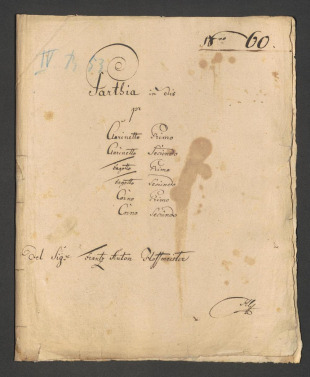 No 60.
Parthia in dis
pr
Clarinetto Primo
Clarinetto Secundo
Fagotto Primo
Fagotto Secundo
Corno Primo
Corno Secundo
Del Sigre Frantz Anton Hoffmeister